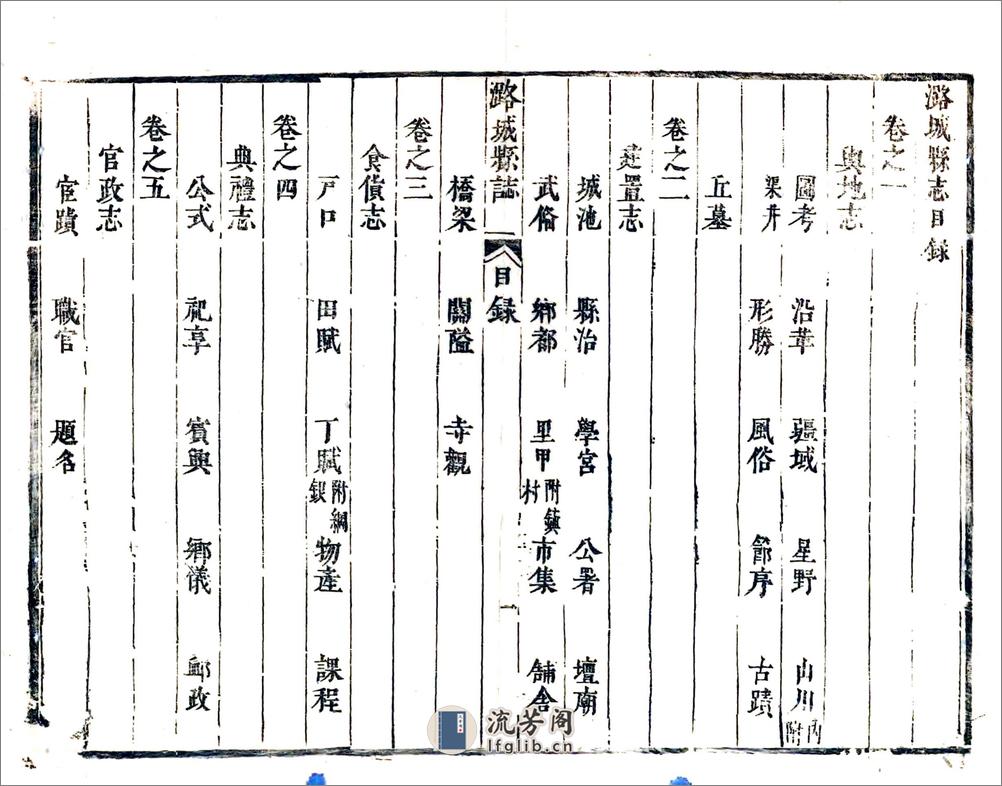 潞城縣志目録
卷之一
輿地志
圖考 沿革 疆域 星野 山川 內附
渠井 形勝 風俗 節序 古蹟
丘墓
卷之二
建置志
城池 縣治 學宮 公署 壇廟
武俗 鄉都 里甲 附鎮村 市集 舖舍
潞城縣誌 目録 一
橋梁 關隘 寺觀
卷之三
食貨志
戶口 田賦 丁賦 附綱銀 物產 課程
卷之四
典禮志
公式 祀享 賓興 鄉儀 郵政
卷之五
官政志
宦蹟 職官 題名
流芳阁
lfglib.cn